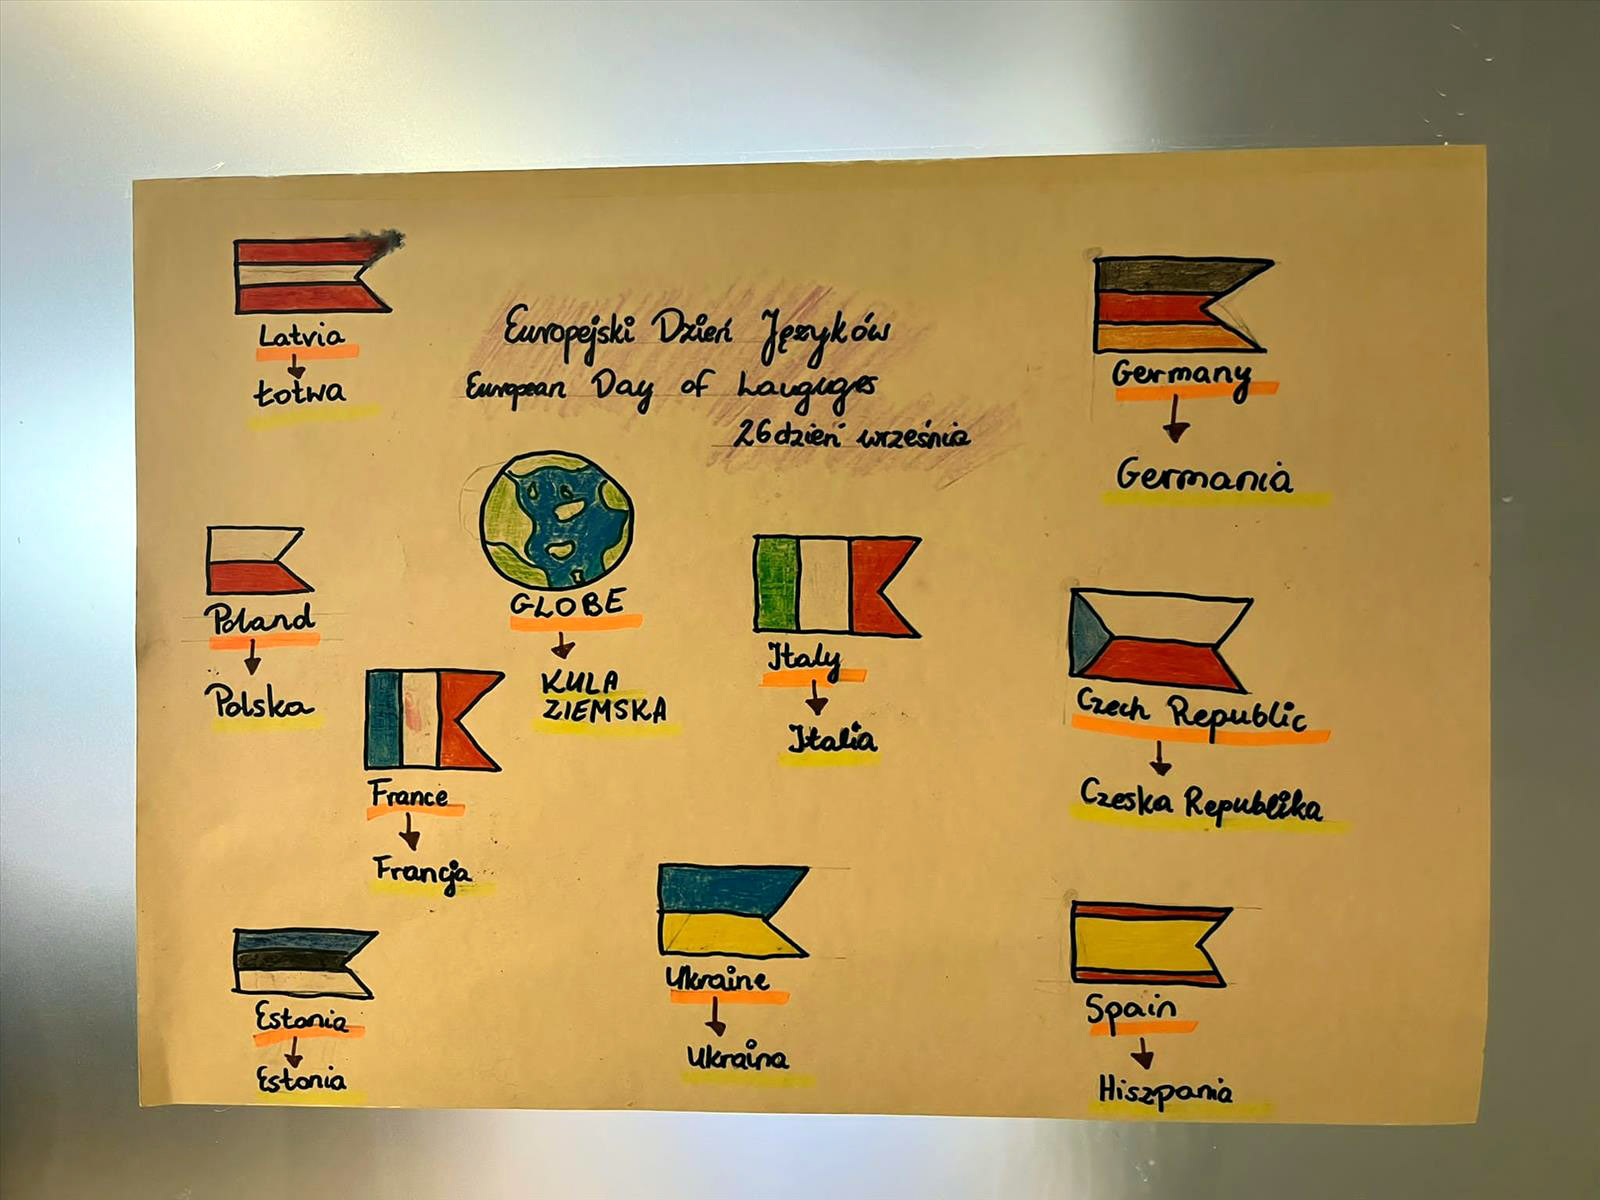 Europejski Dzień Języków
European Day of Lauguges
26 dzień września
Latvia
Łotwa
Germany
Germania
Poland
Polska
GLOBE
KULA
ZIEMSKA
Italy
Italia
Czech Republic
Czeska Republika
France
Francja
Ukraine
Ukraina
Estonia
Estonia
Spain
Hiszpania